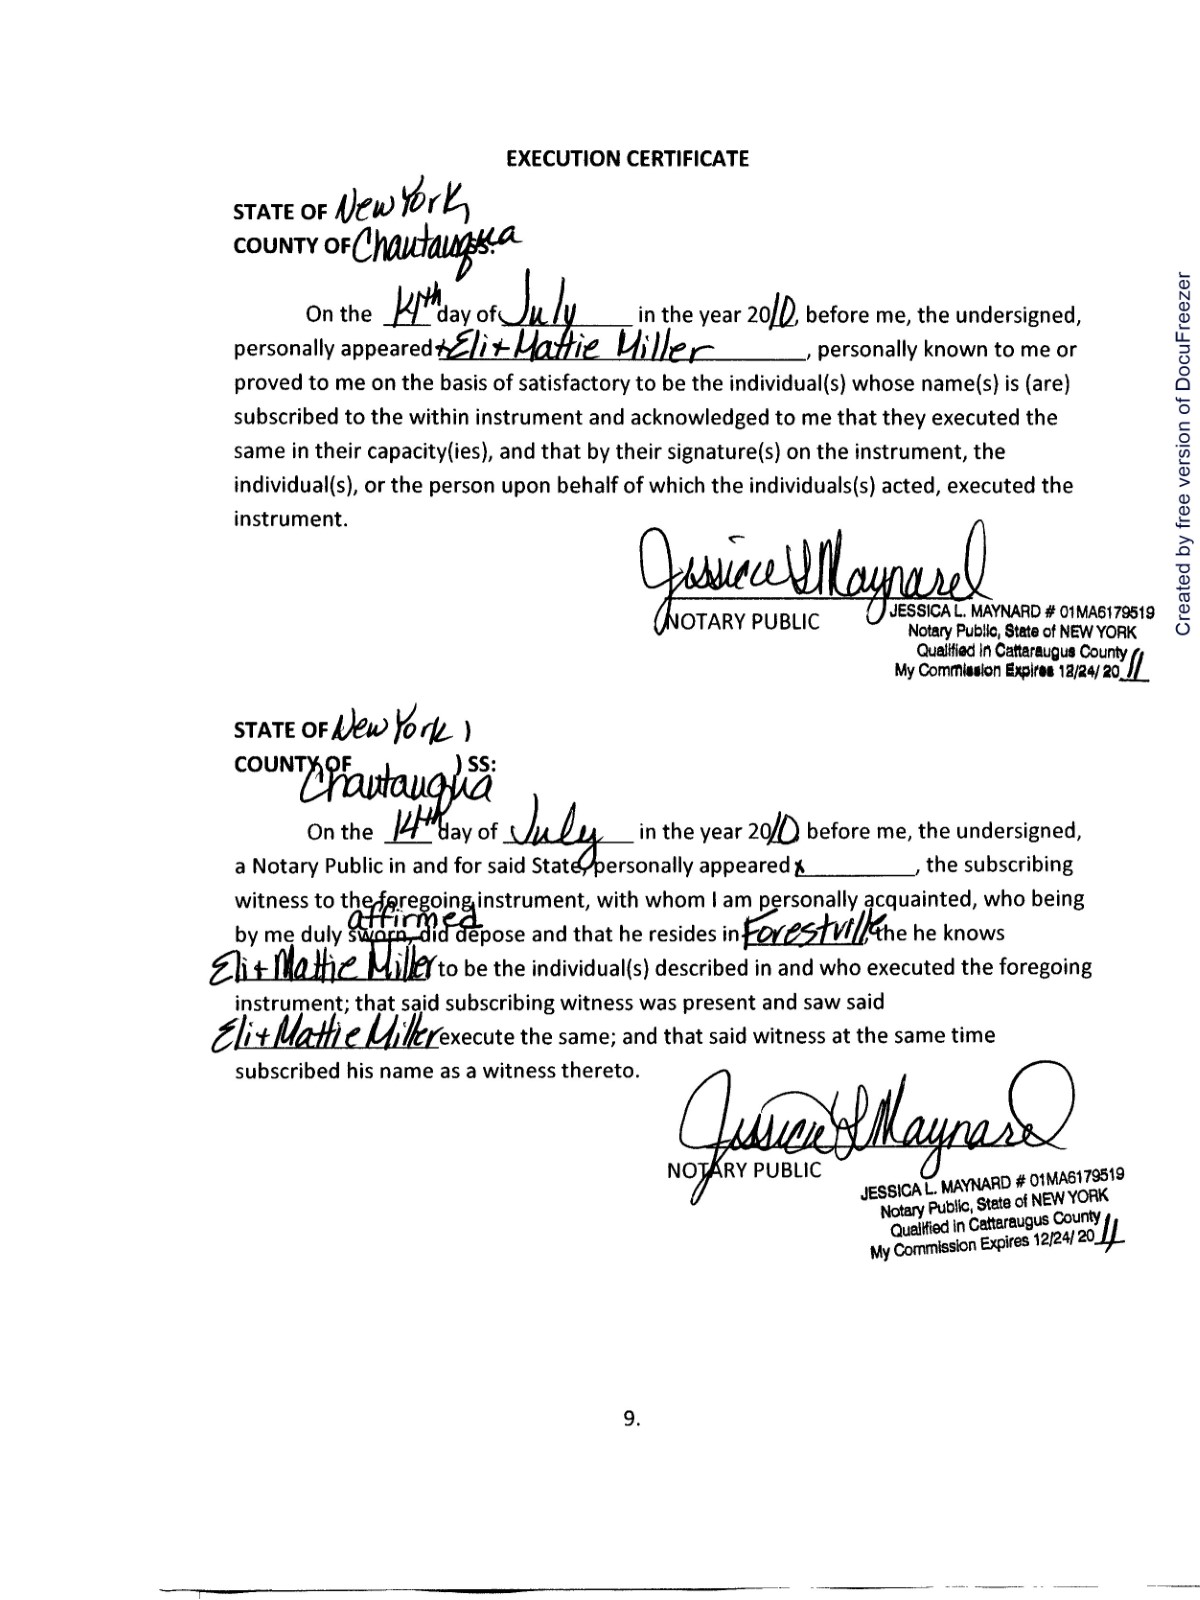 EXECUTION CERTIFICATE
STATE OF New York
COUNTY OF Chautauqua SS:
On the 14th day of July in the year 2010, before me, the undersigned,
personally appeared x Eli + Mattie Miller, personally known to me or
proved to me on the basis of satisfactory to be the individual(s) whose name(s) is (are)
subscribed to the within instrument and acknowledged to me that they executed the
same in their capacity(ies), and that by their signature(s) on the instrument, the
individual(s), or the person upon behalf of which the individuals(s) acted, executed the
instrument.
Jessica L Maynard
NOTARY PUBLIC
JESSICA L. MAYNARD # 01MA6179519
Notary Public, State of NEW YORK
Qualified in Cattaraugus County
My Commission Expires 12/24/ 20 11
STATE OF New York )
COUNTY OF ) SS:
Chautauqua
On the 14th day of July in the year 2010 before me, the undersigned,
a Notary Public in and for said State, personally appeared x , the subscribing
witness to the foregoing instrument, with whom I am personally acquainted, who being
affirmed
by me duly sworn, did depose and that he resides in Forestville, the he knows
Eli + Mattie Miller to be the individual(s) described in and who executed the foregoing
instrument; that said subscribing witness was present and saw said
Eli + Mattie Miller execute the same; and that said witness at the same time
subscribed his name as a witness thereto.
Jessica L Maynard
NOTARY PUBLIC
JESSICA L. MAYNARD # 01MA6179519
Notary Public, State of NEW YORK
Qualified in Cattaraugus County
My Commission Expires 12/24/ 20 11
9.
Created by free version of DocuFreezer